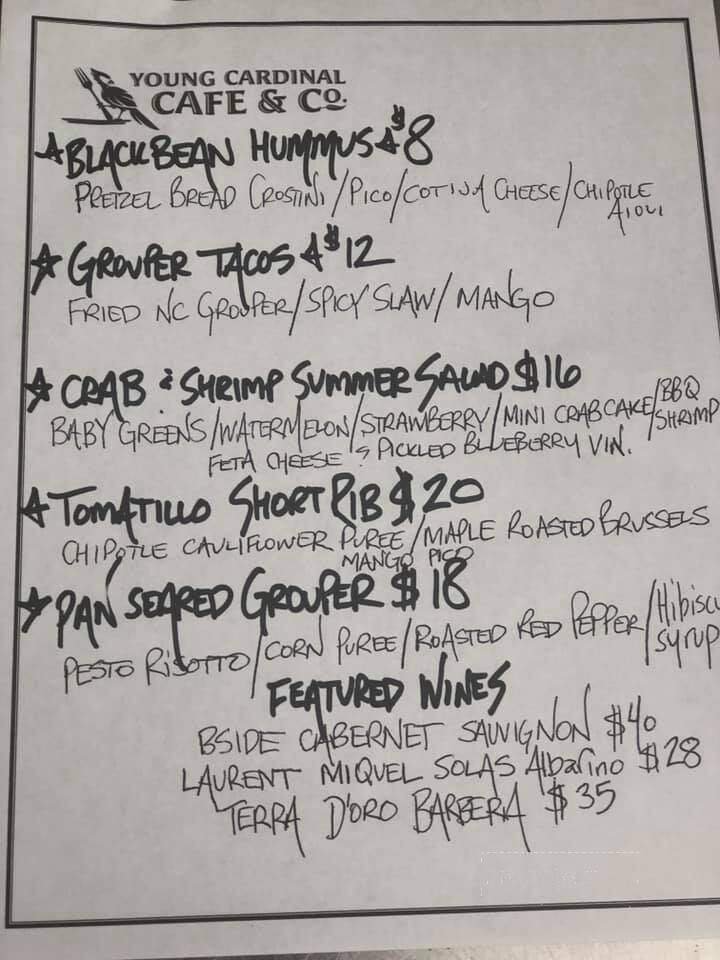 YOUNG CARDINAL
CAFE & CO.
BLACK BEAN HUMMUS $8
PRETZEL BREAD CROSTINI/PICO/COTIJA CHEESE/CHIPOTLE
AIOLI
GROUPER TACOS $12
FRIED NC GROUPER/SPICY SLAW/MANGO
CRAB & SHRIMP SUMMER SALAD $16
BABY GREENS/WATERMELON/STRAWBERRY/MINI CRABCAKE/BBQ
SHRIMP
FETA CHEESE & PICKLED BLUEBERRY VIN.
TOMATILLO SHORT RIB $20
CHIPOTLE CAULIFLOWER PUREE/MAPLE ROASTED BRUSSELS
MANGO PICO
PAN SEARED GROUPER $18
PESTO RISOTTO/CORN PUREE/ROASTED RED PEPPER/Hibiscu
syrup
FEATURED WINES
BSIDE CABERNET SAUVIGNON $40
LAURENT MIQUEL SOLAS Albarino $28
TERRA D'ORO BARBERA $35